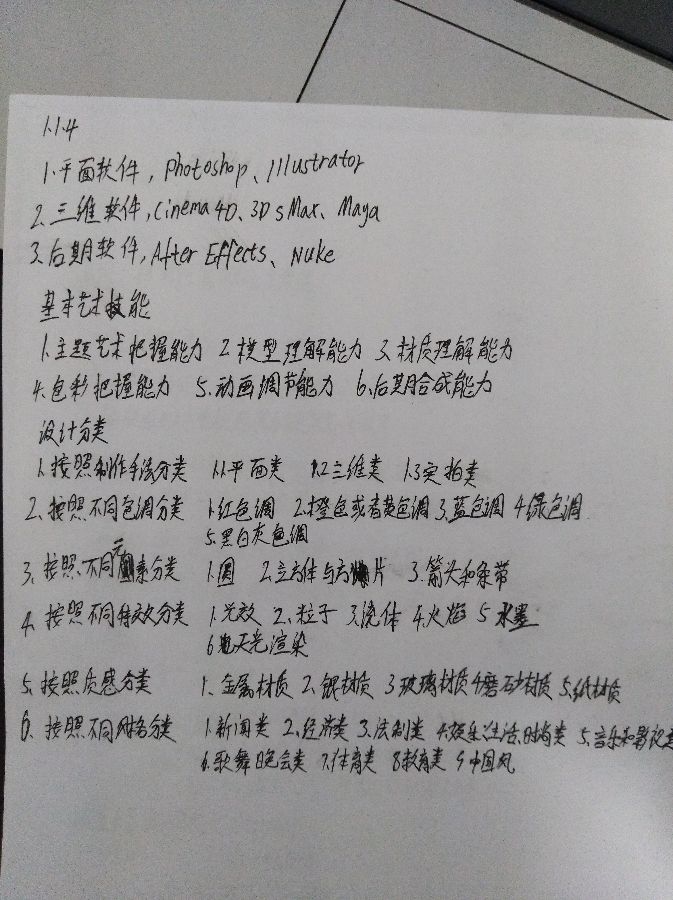 1.1.4
1.平面软件，Photoshop、Illustrator
2.三维软件，Cinema 4D、3D sMax、Maya
3.后期软件，After Effects、Nuke
基本艺术技能
1.主题艺术把握能力 2.模型理解能力 3.材质理解能力
4.色彩把握能力 5.动画调节能力 6.后期合成能力
设计分类
1.按照制作手法分类 1.1平面类 1.2三维类 1.3实拍类
2.按照不同色调分类 1.红色调 2.橙色或者黄色调 3.蓝色调 4.绿色调
5.黑白灰色调
3.按照不同元素分类 1.圆 2.立方体与方片 3.箭头和条带
4.按照不同特效分类 1.光效 2.粒子 3.流体 4.火焰 5.水墨
6.天光渲染
5.按照质感分类 1.金属材质 2.银材质 3.玻璃材质 4.磨砂材质 5.纸材质
6.按照不同风格分类 1.新闻类 2.经济类 3.法制类 4.娱乐生活时尚类 5.音乐和影视类
6.歌舞晚会类 7.体育类 8.教育类 9.中国风